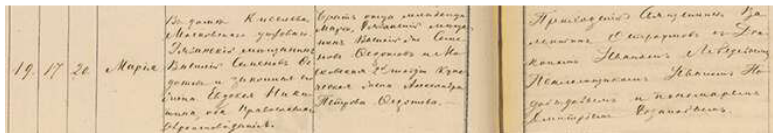 19. 17 20. Мария
Въ домѣ Киселева
Московскаго
Рязанскій мещанинъ
Василій Семеновъ Ѳе-
дотовъ и законная его
жена Евдокія Ники-
тина, оба Православнаго
вероисповѣданія.
Братъ отца младенца
Маріи, Рязанскій мѣща-
нинъ Василій Семе-
новъ Ѳедотовъ и Мо-
сковская 2й гильдіи Купе-
ческая жена Александра
Петрова Ѳедотова.
Приходскій Священникъ Ва-
лентинъ съ Діа-
кономъ Иваномъ Лебедевымъ
Псаломщикомъ Иваномъ
и пономаремъ
Дмитріемъ